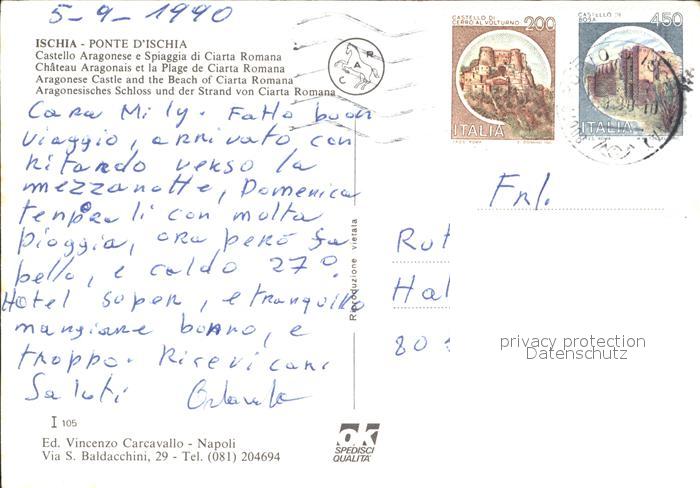 5-9-1990
ISCHIA - PONTE D'ISCHIA
Castello Aragonese e Spiaggia di Ciarta Romana
Château Aragonais et la Plage de Ciarta Romana
Aragonese Castle and the Beach of Ciarta Romana
Aragonesisches Schloss und der Strand von Ciarta Romana
R A C
CASTELLO DI CERRO AL VOLTURNO 200
ITALIA
CASTELLO DI BOSA 450
ITALIA
Cara Mily. Fatto buon
viaggio, arrivato con
ritardo verso la
mezzanotte, Domenica
temporali con molta
pioggia, ora però fa
bello, e caldo 27°.
Hotel super, e tranquillo
mangiare buono, e
troppo. Ricevi cari
Saluti Orlando
Riproduzione vietata
Frl.
Rut
Hal
80
privacy protection
Datenschutz
I 105
Ed. Vincenzo Carcavallo - Napoli
Via S. Baldacchini, 29 - Tel. (081) 204694
ok
SPEDISCI
QUALITÀ